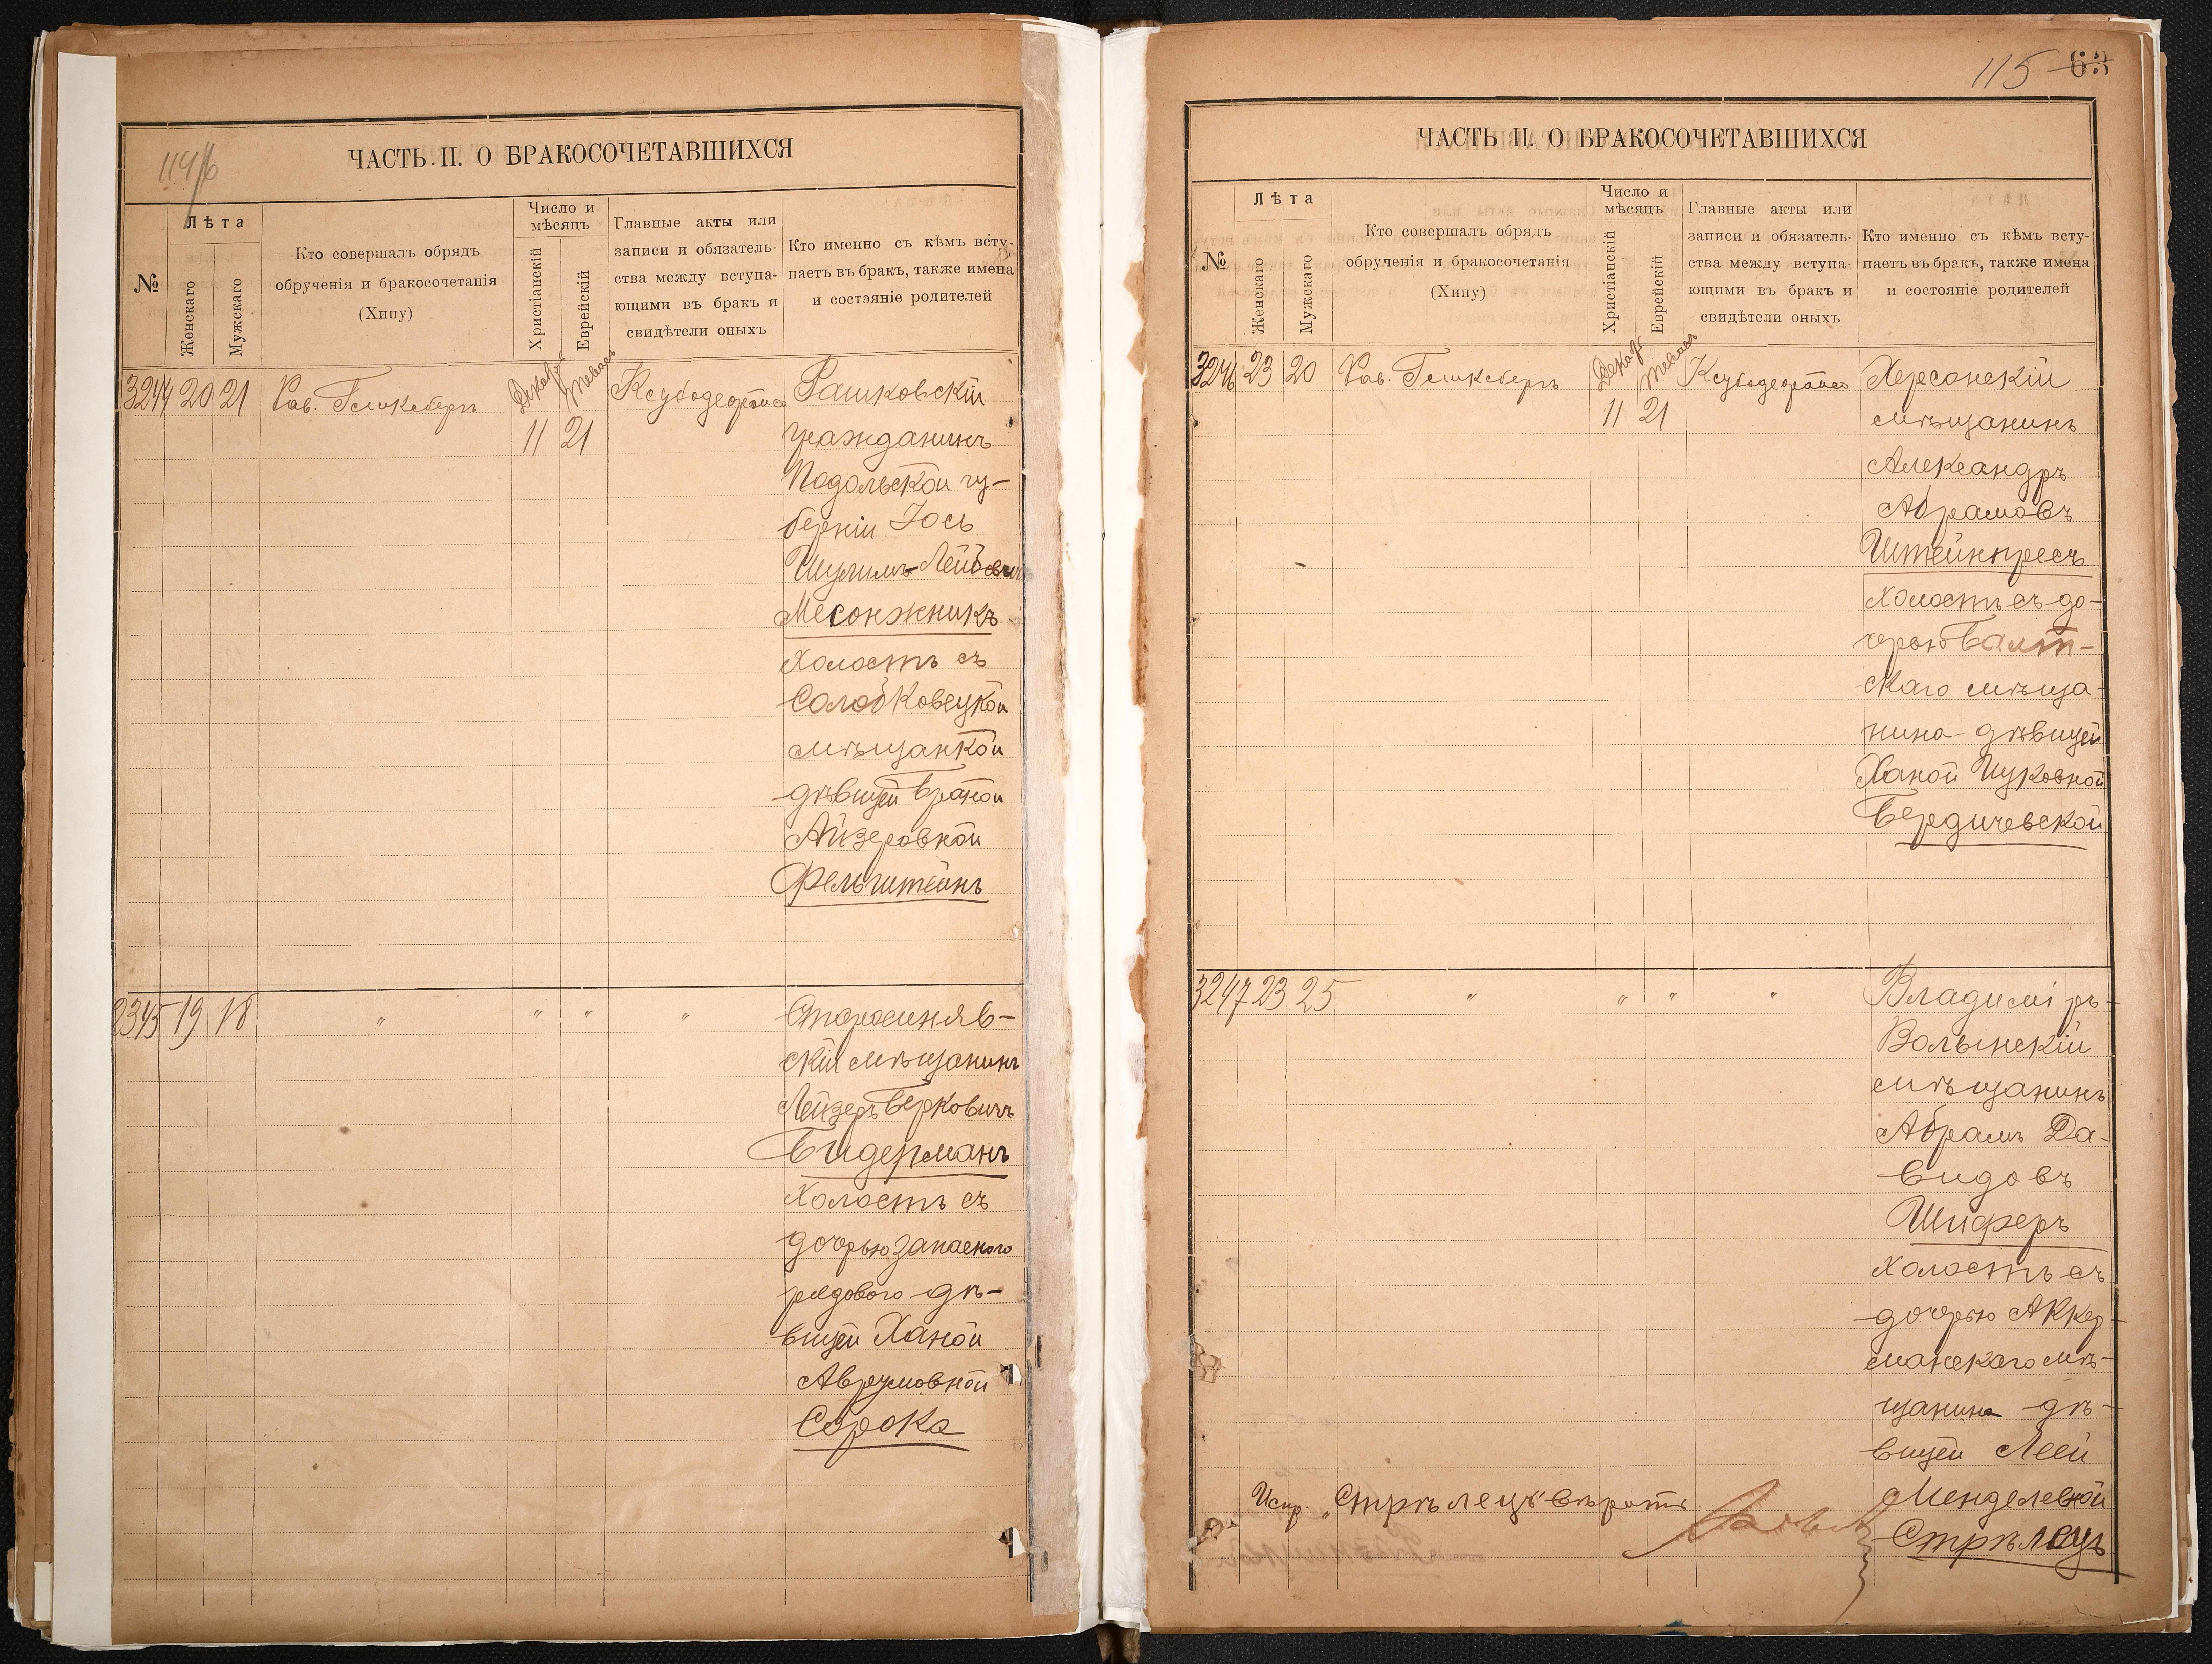 114/б
ЧАСТЬ II. О БРАКОСОЧЕТАВШИХСЯ
№
Лѣта
Женскаго
Мужскаго
Кто совершалъ обрядъ
обрученія и бракосочетанія
(Хипу)
Число и
мѣсяцъ
Христіанскій
Еврейскій
Главные акты или
записи и обязатель-
ства между вступа-
ющими въ бракъ и
свидѣтели оныхъ
Кто именно съ кѣмъ всту-
паетъ въ бракъ, также имена
и состояніе родителей
3244 20 21 Рав. Гликсбергъ
Декабр Тевась
11 21
Рашковскій
гражданинъ
Подольской гу-
берніи Іось
Шулимъ-Лейбовичъ
Месонжникъ
холостъ съ
Солобковецкой
мѣщанкой
дѣвицей Браной
Айзеровной
Фельштейнъ
2345 19 18 " " " "
Старосиняв-
скій мѣщанинъ
Лейзеръ Берковичъ
Бидерманъ
холостъ съ
дочерью запаснаго
рядового дѣ-
вицей Ханой
Аврумовной
Сорока
115 63
ЧАСТЬ II. О БРАКОСОЧЕТАВШИХСЯ
№
Лѣта
Женскаго
Мужскаго
Кто совершалъ обрядъ
обрученія и бракосочетанія
(Хипу)
Число и
мѣсяцъ
Христіанскій
Еврейскій
Главные акты или
записи и обязатель-
ства между вступа-
ющими въ бракъ и
свидѣтели оныхъ
Кто именно съ кѣмъ всту-
паетъ въ бракъ, также имена
и состояніе родителей
3246 23 20 Рав. Гликсбергъ
Декабр Тевась
11 21
Херсонскій
мѣщанинъ
Александръ
Абрамовъ
Штейнпресъ
холостъ съ до-
черью Балт-
скаго мѣща-
нина дѣвицей
Ханой Ицковной
Бердичевской
3247 23 25 " " " "
Владиміръ-
Волынскій
мѣщанинъ
Абрамъ Да-
видовъ
Шиферъ
холостъ съ
дочерью Аккер-
манскаго мѣ-
щанина дѣ-
вицей Леей
Менделевной
Стрѣлецъ
Испр. „Стрѣлецъ" вѣрить